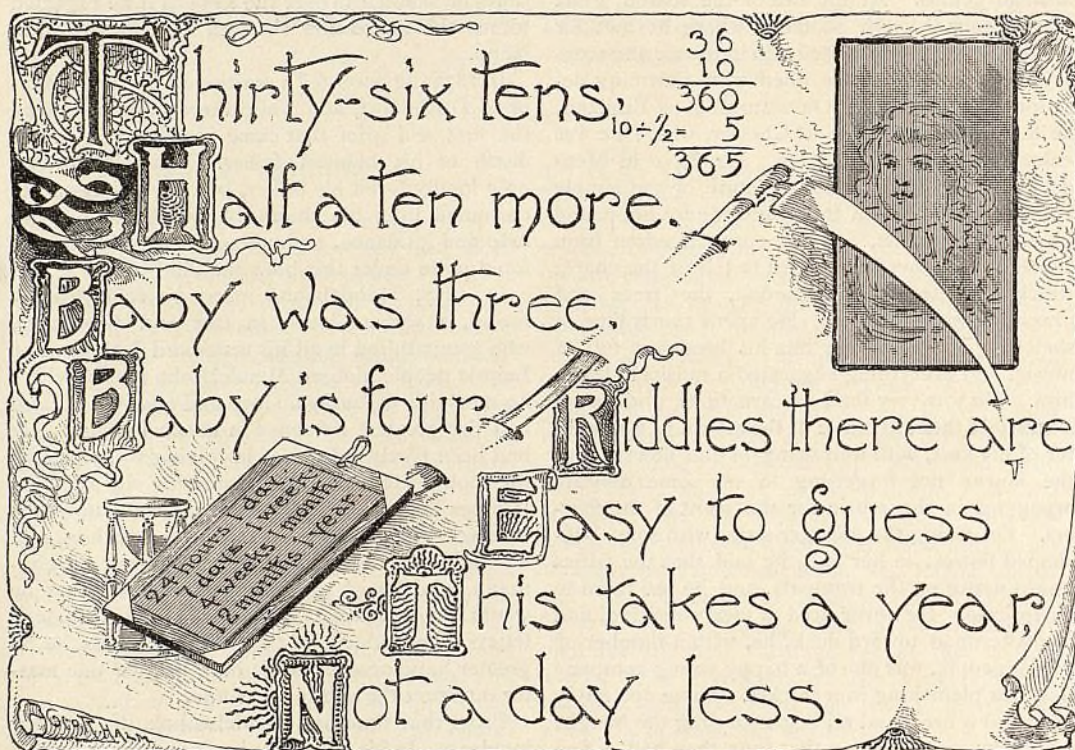 Thirty-six tens,
36
10
360
10÷½= 5
365
Half a ten more.
Baby was three.
Baby is four.
Riddles there are
Easy to guess
This takes a year,
Not a day less.
24 hours 1 day.
7 days 1 week.
4 weeks 1 month.
12 months 1 year.